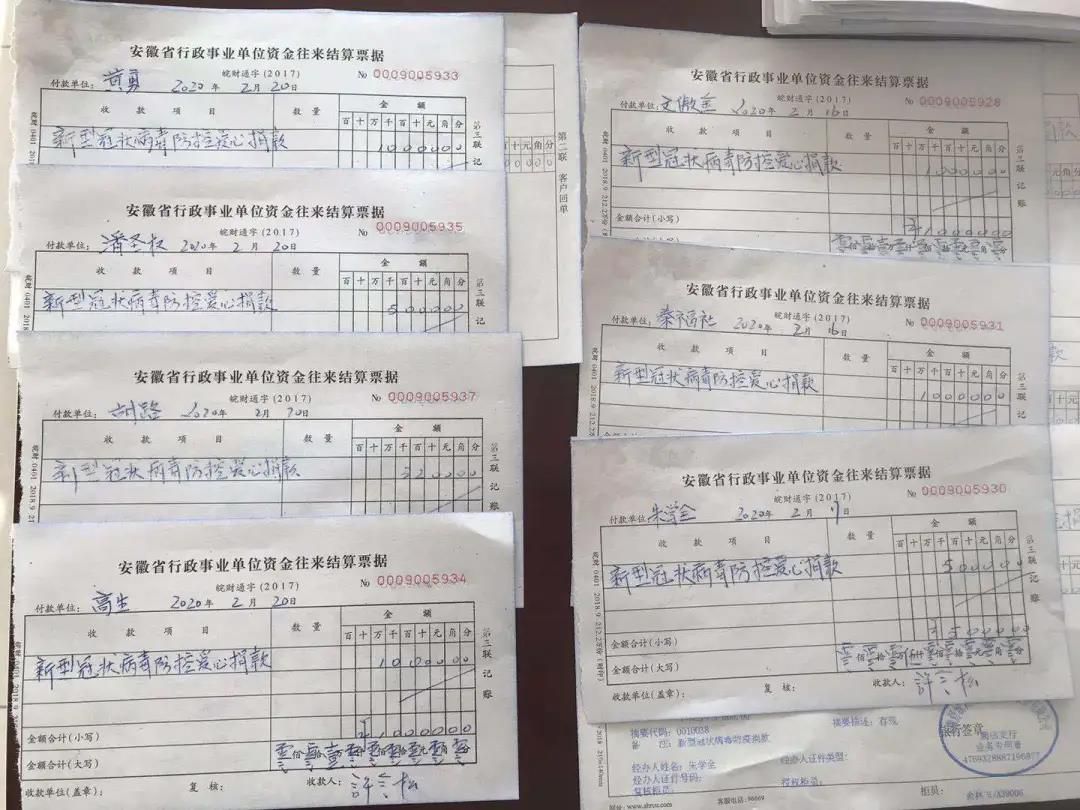 安徽省行政事业单位资金往来结算票据
皖财通字(2017)
№ 0009005933
付款单位: 黄勇 2020年2月20日
收款项目 数量 金额
百十万千百十元角分
新型冠状病毒防控爱心捐款 1000000
第三联 记
第二联 客户回单
安徽省行政事业单位资金往来结算票据
皖财通字(2017)
№ 0009005935
付款单位: 潘圣权 2020年2月20日
收款项目 数量 金额
百十万千百十元角分
新型冠状病毒防控爱心捐款 500000
第三联 记
安徽省行政事业单位资金往来结算票据
皖财通字(2017)
№ 0009005937
付款单位: 胡路 2020年2月20日
收款项目 数量 金额
百十万千百十元角分
新型冠状病毒防控爱心捐款
第三联 记账
安徽省行政事业单位资金往来结算票据
皖财通字(2017)
№ 0009005934
付款单位: 高生 2020年2月20日
收款项目 数量 金额
百十万千百十元角分
新型冠状病毒防控爱心捐款 1000000
第三联 记账
金额合计(小写) 1000000
金额合计(大写)
收款单位(盖章): 复核: 收款人:
安徽省行政事业单位资金往来结算票据
皖财通字(2017)
№ 0009005928
付款单位: 2020年2月16日
收款项目 数量 金额
百十万千百十元角分
新型冠状病毒防控爱心捐款 1000000
第三联 记账
金额合计(小写) 1000000
安徽省行政事业单位资金往来结算票据
皖财通字(2017)
№ 0009005931
付款单位: 秦福社 2020年2月16日
收款项目 数量 金额
百十万千百十元角分
新型冠状病毒防控爱心捐款 1000000
第三联 记账
安徽省行政事业单位资金往来结算票据
皖财通字(2017)
№ 0009005930
付款单位: 朱学全 2020年2月17日
收款项目 数量 金额
百十万千百十元角分
新型冠状病毒防控爱心捐款 500000
第三联 记账
金额合计(小写) 500000
金额合计(大写)
收款单位(盖章): 复核: 收款人:
摘要代码: 0010038 摘要描述: 存现
新型冠状病毒防疫捐款
经办人姓名: 朱学全 经办人证件类型:
经办人证件号码: 授权柜员:
复核柜员: 柜员:
客服电话: 96669
银行签章
业务专用章